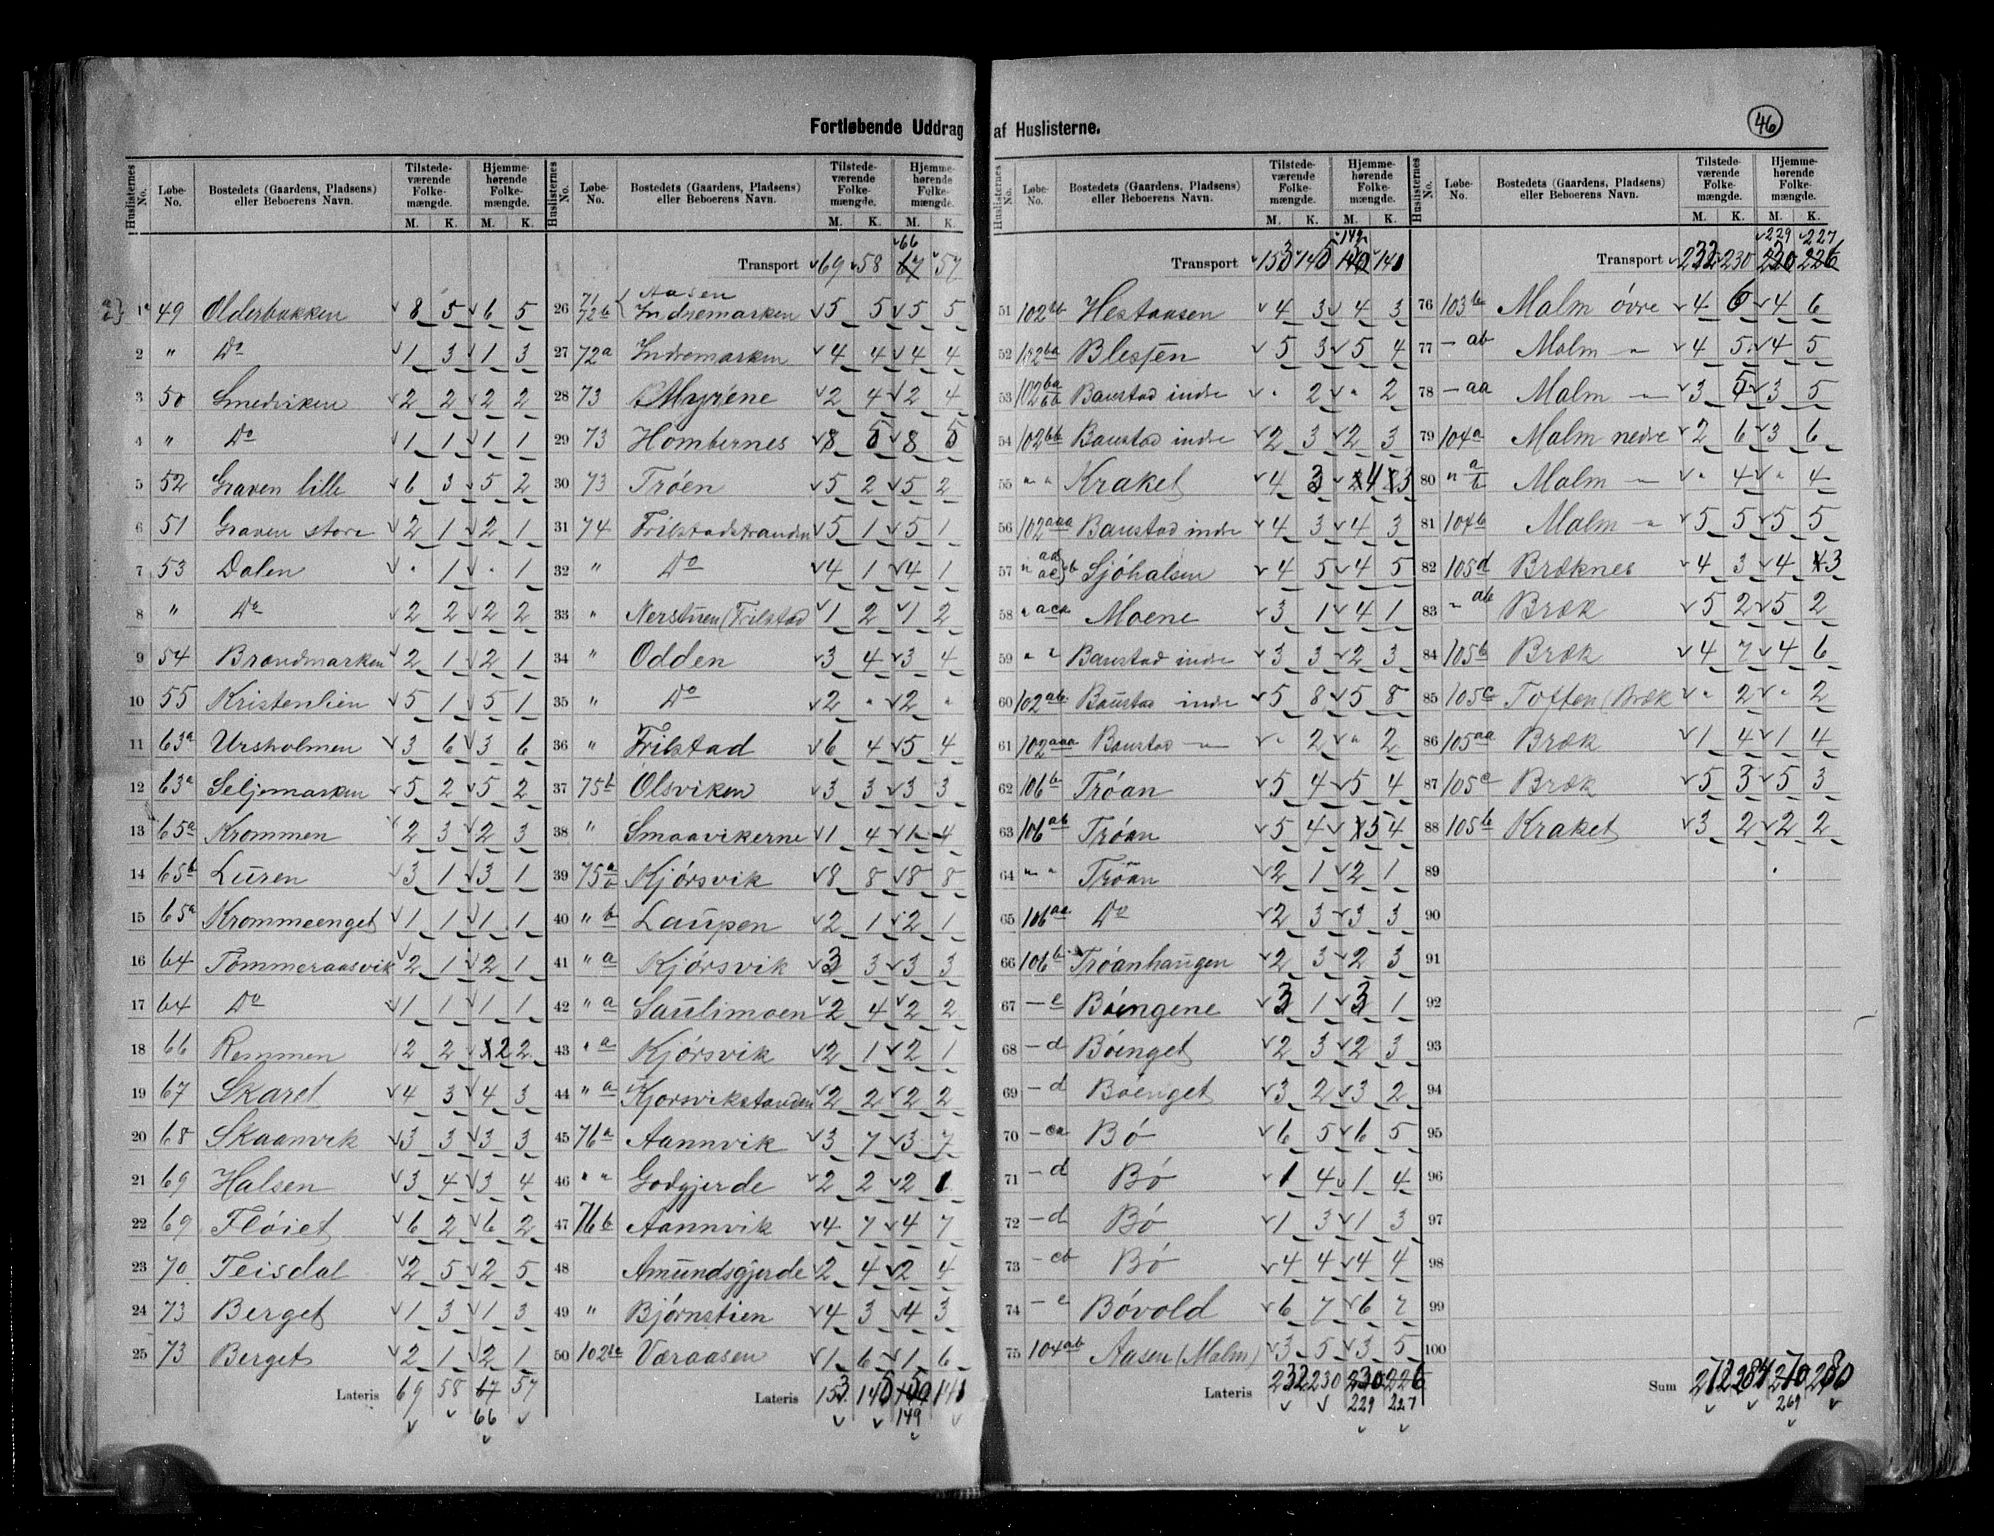 Fortløbende Uddrag af Huslisterne.
46
Huslisternes No. Løbe-No. Bostedets (Gaardens, Pladsens) eller Beboerens Navn. Tilstedeværende Folkemængde. Hjemmehørende Folkemængde.
M. K. M. K.
1 49 Olderbakken 8 5 6 5
2 " Do 1 3 1 3
3 50 Smedviken 2 2 2 2
4 " Do 1 1 1 1
5 52 Graven lille 6 3 5 2
6 51 Graven store 2 1 2 1
7 53 Dalen " 1 " 1
8 " Do 2 2 2 2
9 54 Brandmarken 2 1 2 1
10 55 Kristenlien 5 1 5 1
11 63a Ursholmen 3 6 3 6
12 63a Seljemarken 5 2 5 2
13 65a Krommen 2 3 2 3
14 65b Luren 3 1 3 1
15 65a Krommeenget 1 1 1 1
16 64 Tømmeraasvik 2 1 2 1
17 64 Do 1 1 1 1
18 66 Remmen 2 2 2 2
19 67 Skaret 4 3 4 3
20 68 Skaanvik 3 3 3 3
21 69 Halsen 3 4 3 4
22 69 Fløiet 6 2 6 2
23 70 Teisdal 2 5 2 5
24 73 Berget 1 3 1 3
25 73 Berget 2 1 2 1
Lateris 69 58 67 57
66
Huslisternes No. Løbe-No. Bostedets (Gaardens, Pladsens) eller Beboerens Navn. Tilstedeværende Folkemængde. Hjemmehørende Folkemængde.
M. K. M. K.
66
Transport 69 58 67 57
26 71 72b Aasen Indremarken 5 5 5 5
27 72a Indremarken 4 4 4 4
28 73 Myrene 2 4 2 4
29 73 Hombernes 8 5 8 5
30 73 Trøen 5 2 5 2
31 74 Frilstadstranden 5 1 5 1
32 " Do 4 1 4 1
33 " Nerstuen (Frilstad 1 2 1 2
34 " Odden 3 4 3 4
35 " Do 2 " 2 "
36 " Frilstad 6 4 5 4
37 75b Olsviken 3 3 3 3
38 " Smaavikerne 1 4 1 4
39 75a/b Kjørsvik 8 8 8 8
40 " b Laupen 2 1 2 1
41 " a Kjørsvik 3 3 3 3
42 " a Saulimoen 2 4 2 2
43 " a Kjørsvik 2 1 2 1
44 " a Kjørsvikstanden 2 2 2 2
45 76a Aannvik 3 7 3 7
46 " " Godgjerde 2 2 2 1
47 76b Aannvik 4 7 4 7
48 Amundsgjerde 2 4 2 4
49 " Bjørnstien 4 3 4 3
50 Væraasen 1 6 1 6
Lateris 153 145 141
149
Huslisternes No. Løbe-No. Bostedets (Gaardens, Pladsens) eller Beboerens Navn. Tilstedeværende Folkemængde. Hjemmehørende Folkemængde.
M. K. M. K.
Transport 153 145 141
51 Hestaasen 4 3 4 3
52 102ba Blesjen 5 3 5 4
53 Baustad indre " 2 " 2
54 102bb Baustad indre 2 3 2 3
55 " " Kraket 4 3 4 3
56 102aaa Baustad indre 4 3 4 3
57 " Sjøhalsen 4 5 4 5
58 " aca Moene 3 1 4 1
59 " " Baustad indre 3 3 2 3
60 102ab Baustad indre 5 8 5 8
61 102aaa Baustad — " — " 2 " 2
62 106b Trøan 5 4 5 4
63 106ab Trøan 5 4 5 4
64 " " Trøan 2 1 2 1
65 106aa Do 2 3 3 3
66 106b Trøanhaugen 2 3 2 3
67 — e Bøengene 3 1 3 1
68 — d Bøenget 2 3 2 3
69 — d Bøenget 3 2 3 2
70 — ca Bø 6 5 6 5
71 — d Bø 1 4 1 4
72 — d Bø 1 3 1 3
73 — cb Bø 4 4 4 4
74 — e Bøvold 6 7 6 7
75 104ab Aasen (Malm) 3 5 3 5
Lateris 232 230 230 226
229 227
Huslisternes No. Løbe-No. Bostedets (Gaardens, Pladsens) eller Beboerens Navn. Tilstedeværende Folkemængde. Hjemmehørende Folkemængde.
M. K. M. K.
229 227
Transport 232 230 230 226
76 103b Malm øvre 4 6 4 6
77 — ab Malm — " — 4 5 4 5
78 — aa Malm — 3 5 3 5
79 104a Malm nedre 2 6 3 6
80 " a/b Malm — " 4 " 4
81 104b Malm — " — 5 5 5 5
82 105d Bræknes 4 3 4 3
83 " ab Bræk 5 2 5 2
84 105b Bræk 4 7 4 6
85 105c Toften (Bræk " 2 " 2
86 105aa Bræk 1 4 1 4
87 105e Bræk 5 3 5 3
88 105b Kraket 3 2 2 2
89
90
91
92
93
94
95
96
97
98
99
100
Sum 272 284 270 280
269